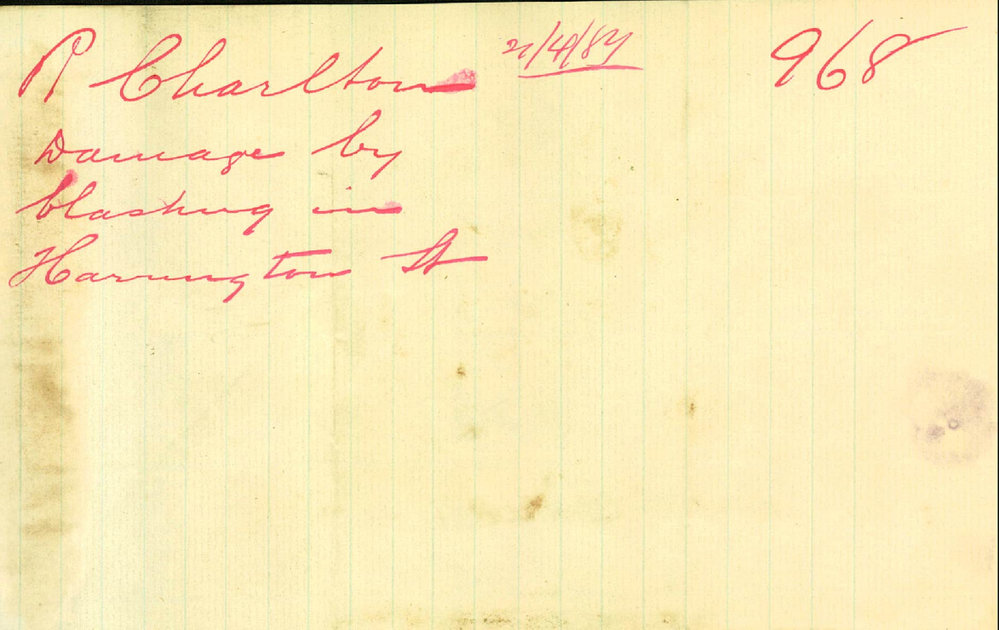 R Charlton 968
Damage by
blasting in
Harrington St